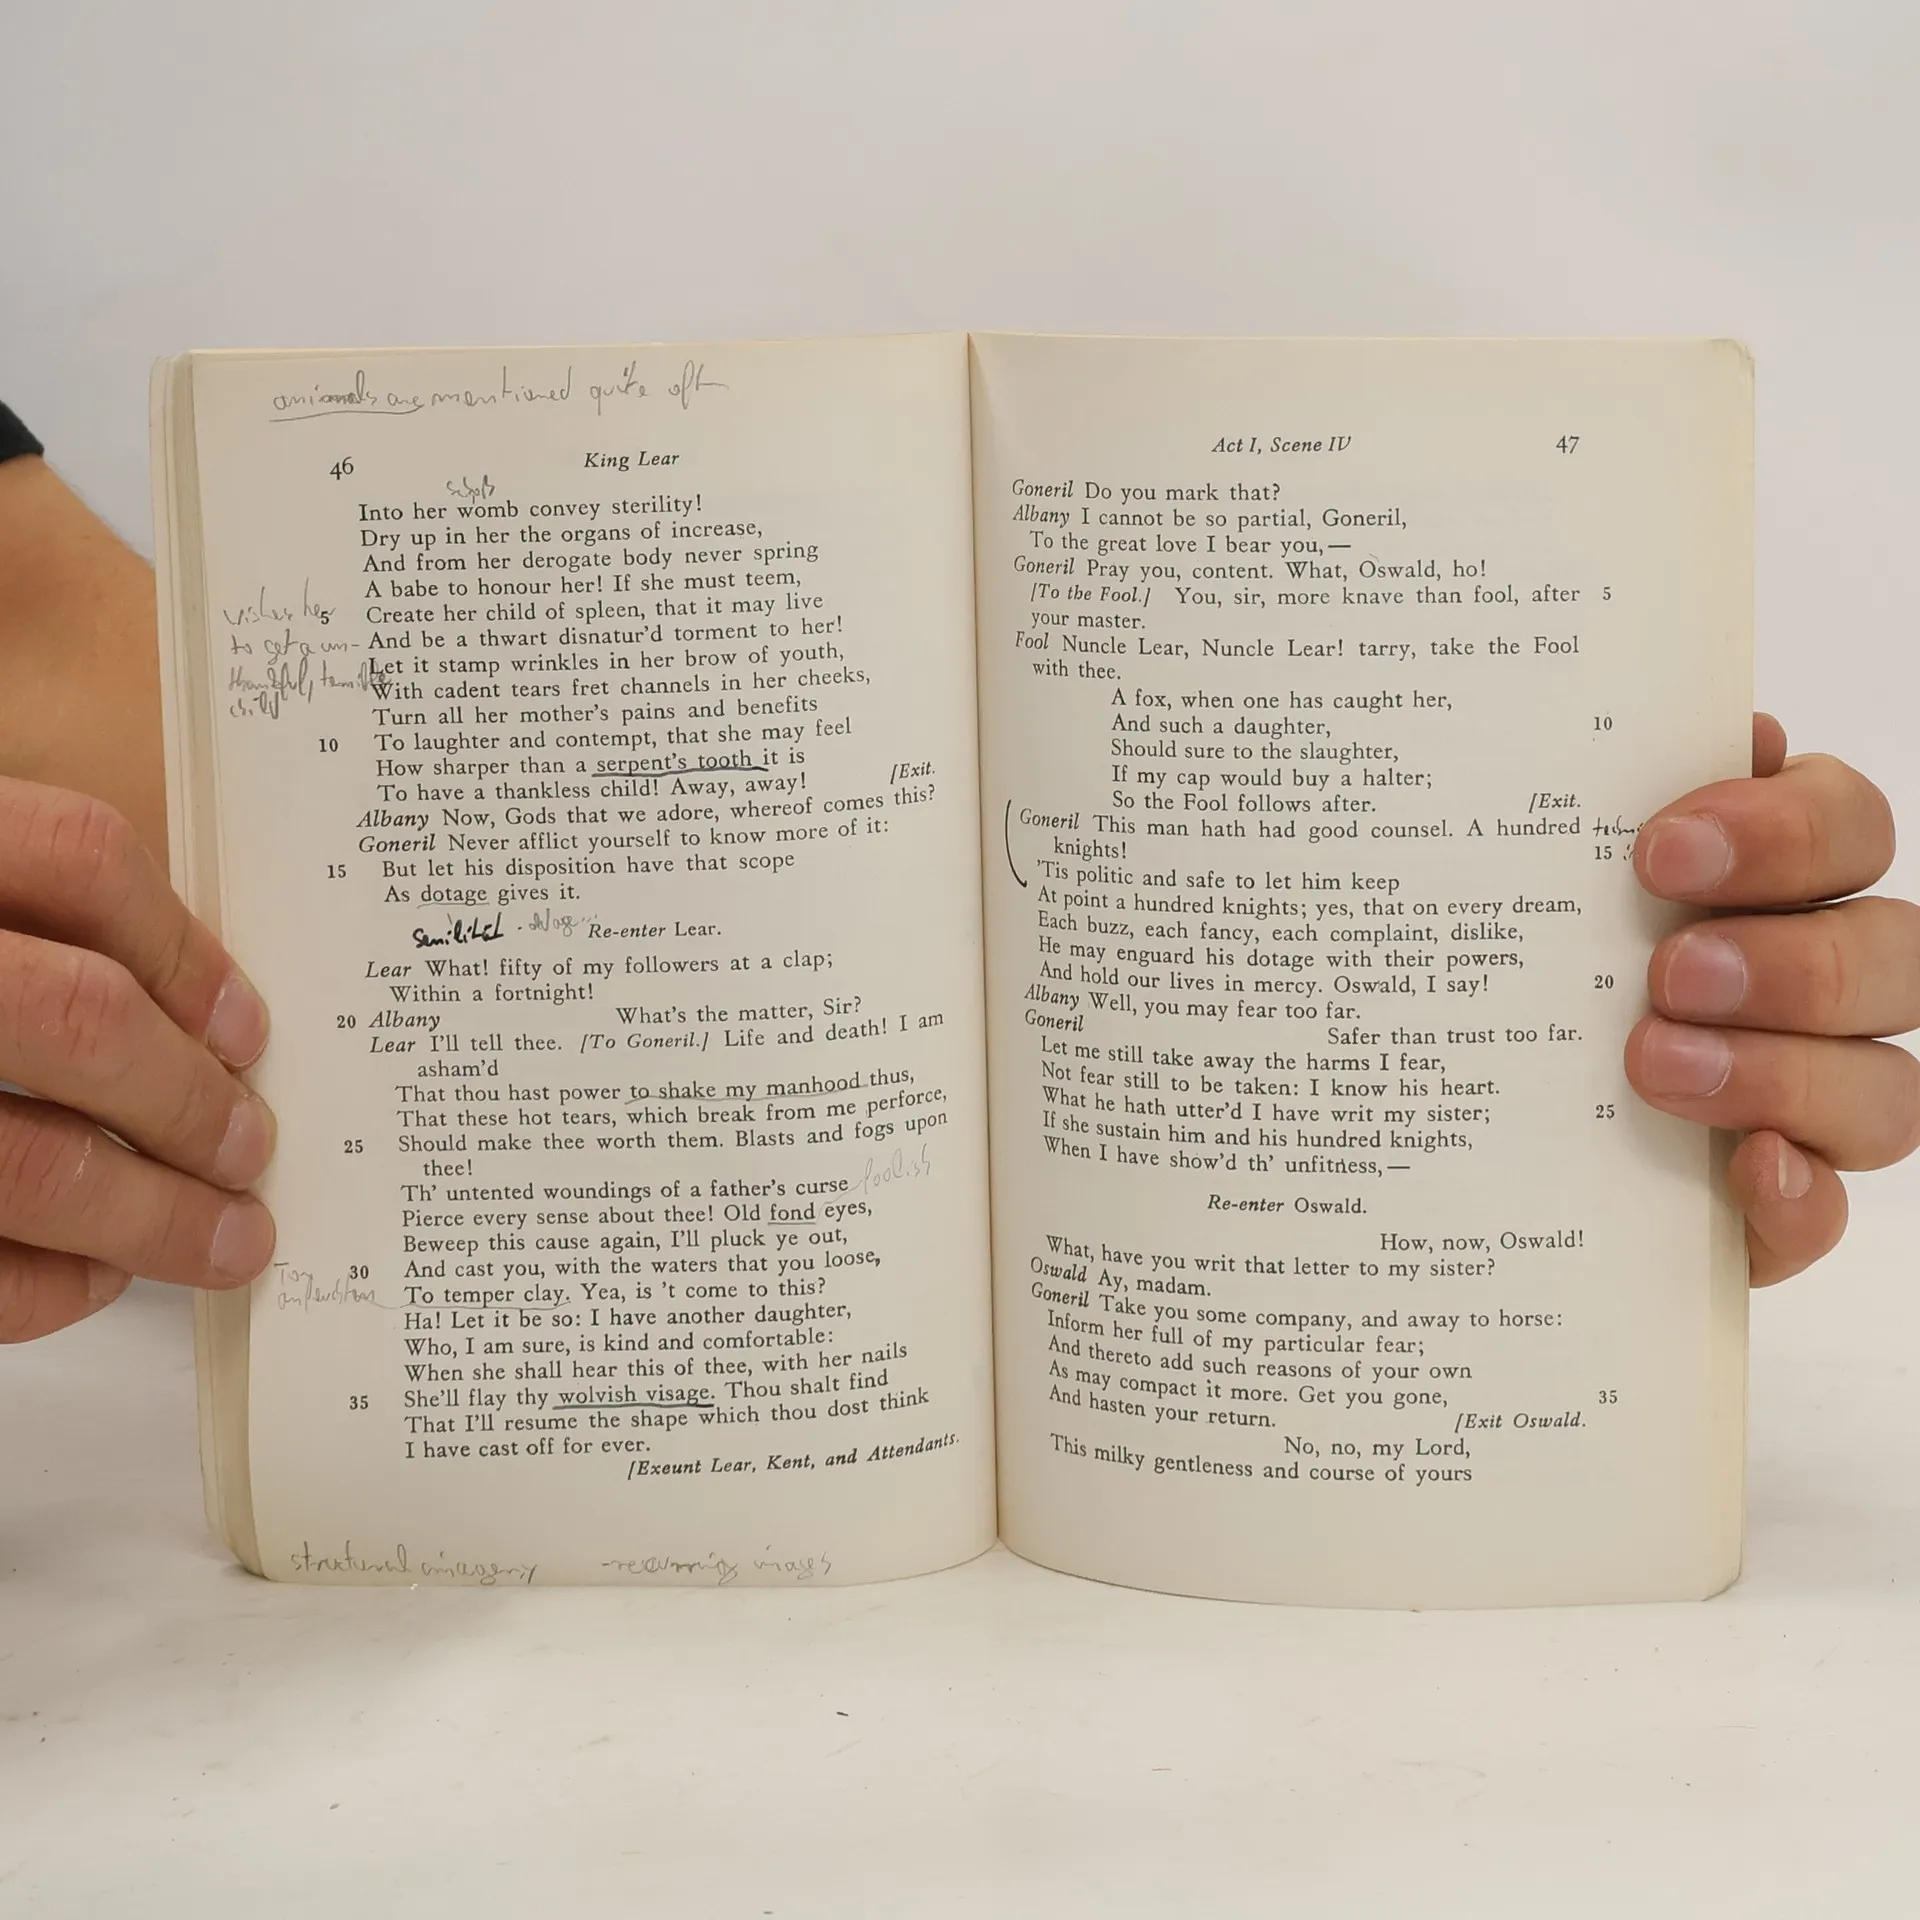 animals are mentioned quite oft
46 King Lear
Schoß
Into her womb convey sterility!
Dry up in her the organs of increase,
And from her derogate body never spring
A babe to honour her! If she must teem,
wishes her
5 Create her child of spleen, that it may live
to get a un-
And be a thwart disnatur'd torment to her!
Let it stamp wrinkles in her brow of youth,
thankful, terrible
With cadent tears fret channels in her cheeks,
child
Turn all her mother's pains and benefits
10 To laughter and contempt, that she may feel
How sharper than a serpent's tooth it is
To have a thankless child! Away, away! [Exit.
Albany Now, Gods that we adore, whereof comes this?
Goneril Never afflict yourself to know more of it:
15 But let his disposition have that scope
As dotage gives it.
Senilität
Re-enter Lear.
Lear What! fifty of my followers at a clap;
Within a fortnight!
20 Albany What's the matter, Sir?
Lear I'll tell thee. [To Goneril.] Life and death! I am
asham'd
That thou hast power to shake my manhood thus,
That these hot tears, which break from me perforce,
25 Should make thee worth them. Blasts and fogs upon
thee!
foolish
Th' untented woundings of a father's curse
Pierce every sense about thee! Old fond eyes,
Beweep this cause again, I'll pluck ye out,
30 And cast you, with the waters that you loose,
To temper clay. Yea, is 't come to this?
Ha! Let it be so: I have another daughter,
Who, I am sure, is kind and comfortable:
When she shall hear this of thee, with her nails
35 She'll flay thy wolvish visage. Thou shalt find
That I'll resume the shape which thou dost think
I have cast off for ever.
[Exeunt Lear, Kent, and Attendants.
structural imagery -recurring images
Act I, Scene IV 47
Goneril Do you mark that?
Albany I cannot be so partial, Goneril,
To the great love I bear you,—
Goneril Pray you, content. What, Oswald, ho!
[To the Fool.] You, sir, more knave than fool, after 5
your master.
Fool Nuncle Lear, Nuncle Lear! tarry, take the Fool
with thee.
A fox, when one has caught her,
And such a daughter, 10
Should sure to the slaughter,
If my cap would buy a halter;
So the Fool follows after. [Exit.
Goneril This man hath had good counsel. A hundred
knights! 15
'Tis politic and safe to let him keep
At point a hundred knights; yes, that on every dream,
Each buzz, each fancy, each complaint, dislike,
He may enguard his dotage with their powers,
And hold our lives in mercy. Oswald, I say! 20
Albany Well, you may fear too far.
Goneril Safer than trust too far.
Let me still take away the harms I fear,
Not fear still to be taken: I know his heart.
What he hath utter'd I have writ my sister; 25
If she sustain him and his hundred knights,
When I have show'd th' unfitness,—
Re-enter Oswald.
How, now, Oswald!
What, have you writ that letter to my sister?
Oswald Ay, madam.
Goneril Take you some company, and away to horse:
Inform her full of my particular fear;
And thereto add such reasons of your own
As may compact it more. Get you gone, 35
And hasten your return. [Exit Oswald.
No, no, my Lord,
This milky gentleness and course of yours